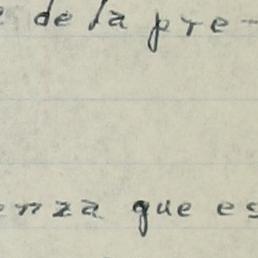 e de la pre-
enza que es